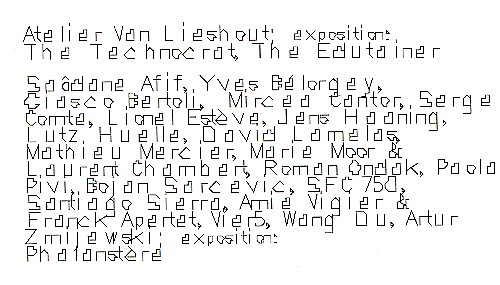 Atelier Van Lieshout; exposition:
The Technocrat, The Edutainer
Saâdane Afif, Yves Bélorgey,
Ciasco Bertoli, Mircea Cantor, Serge
Comte, Lionel Estève, Jens Haaning,
Lutz Huelle, David Lamelas,
Mathieu Mercier, Marie Moor &
Laurent Chambert, Roman Ondak, Paola
Pivi, Bojan Sarcevic, SFC 75D,
Santiago Sierra, Amie Vigier &
Franck Apertet, Vier5, Wang Du, Artur
Zmijewski; exposition:
Phalanstère